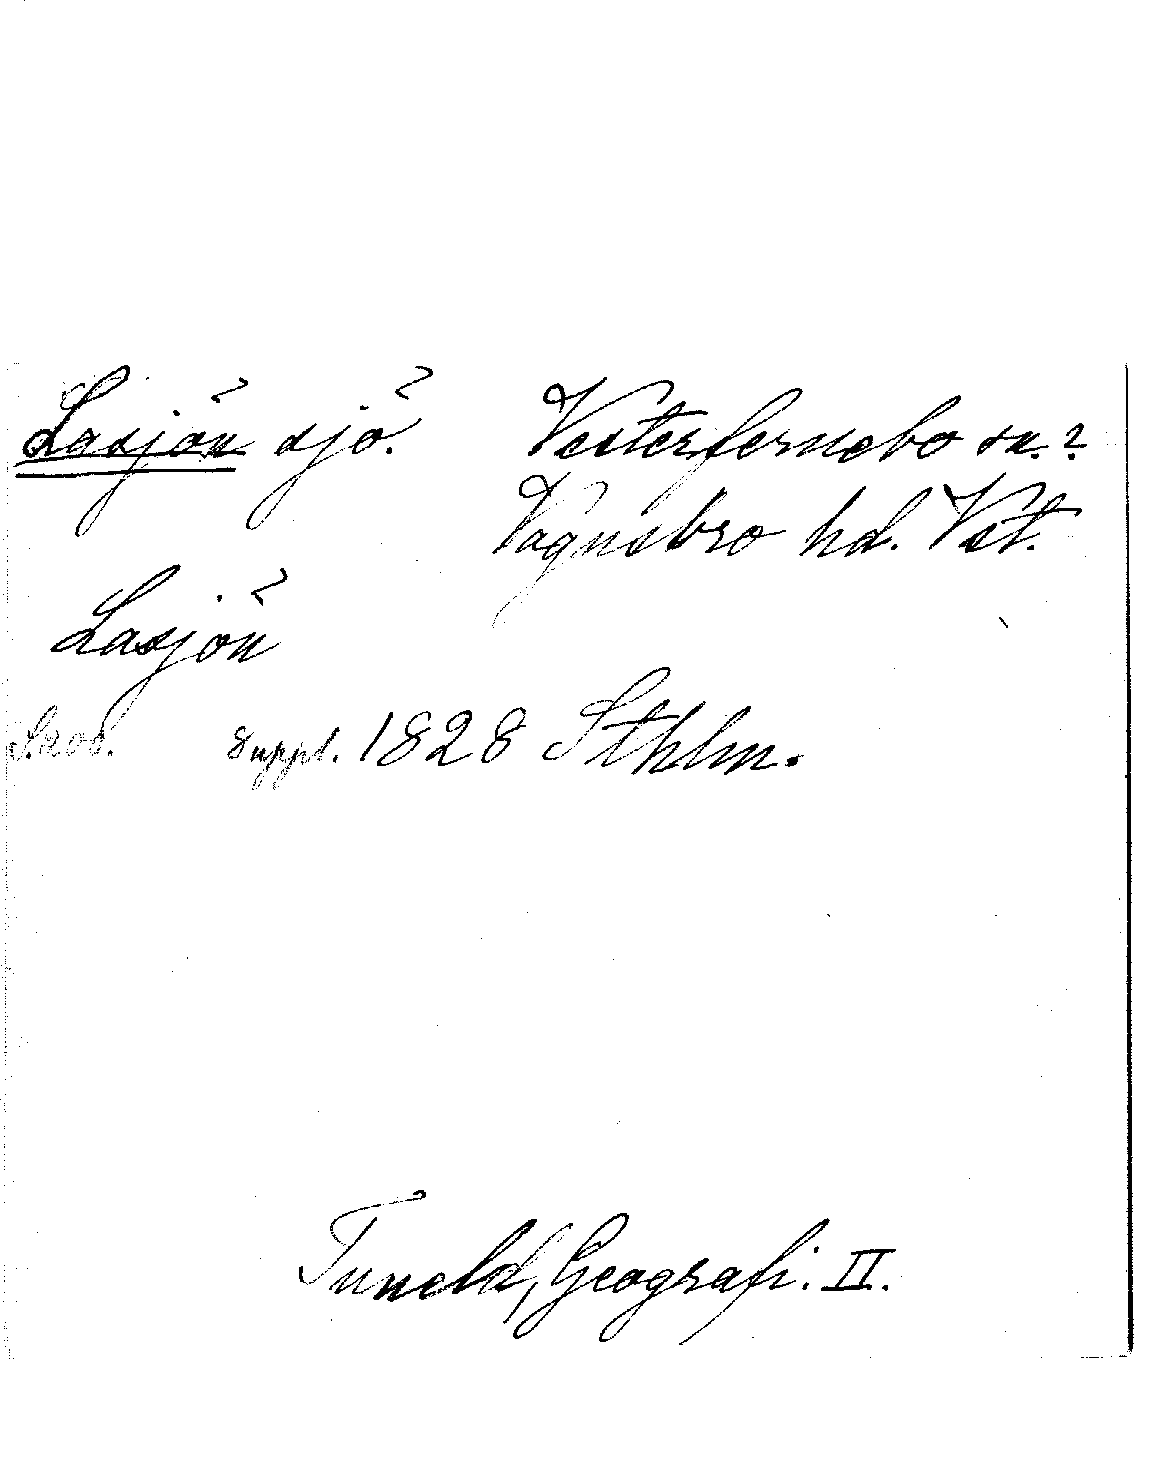 Lasjön sjö. Vesterfernebo sn.?
Vagnsbro hd. Vst.
Lasjön
S.208. Suppl. 1828 Sthlm.
Tuneld, Geografi. II.